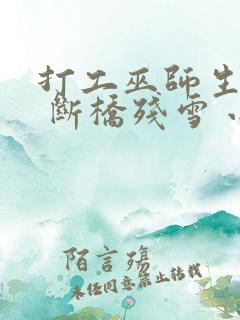 打工巫師生
斷橋殘雪
陌言殤
未經同意禁止轉載